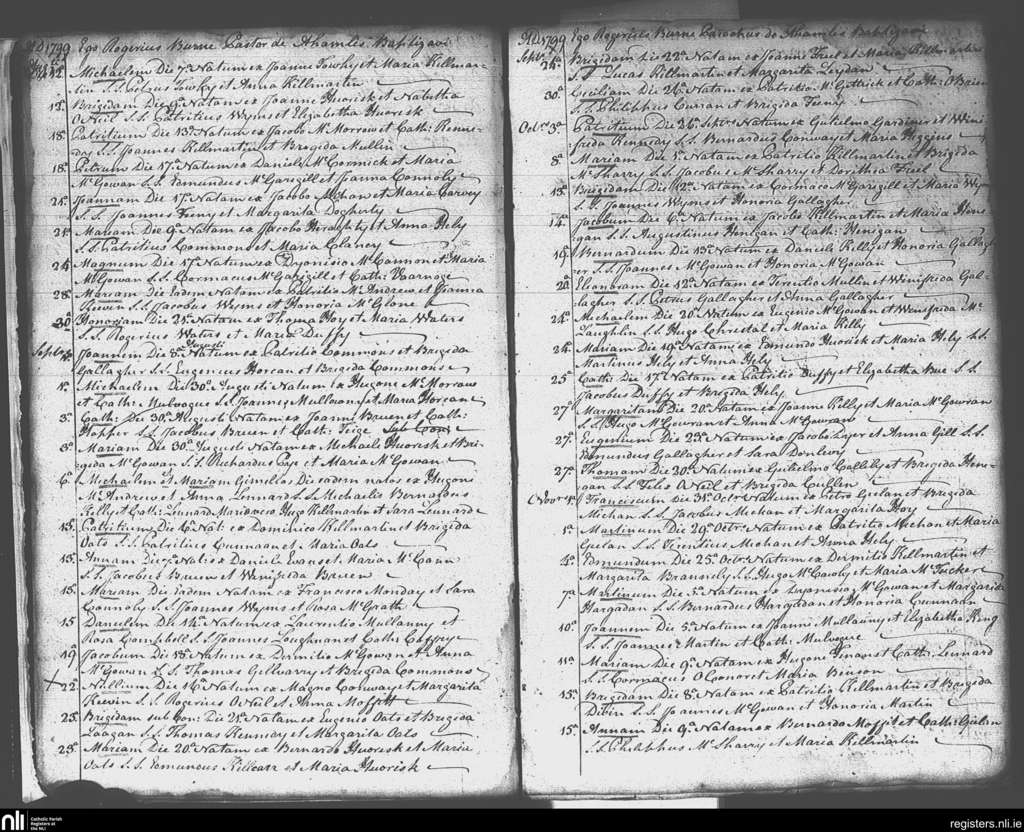 AD 1799 Ego Rogerius Burne Pastor de Ahamles Baptizavi
Michaelem Die 7a Natum ex Joanne Towhy et Maria Killmar-
tin S.S. Celsus Towhy et Anna Killmartin
12a Brigidam Die 9a Natam ex Joanne Huorisk et Nabitha
O Neil S.S. Patritius Wyms et Elizabetha Huorisk
18a Patritium Die 13a Natum ex Jacobo Mc Morrow et Cath: Kenne-
dey S.S. Joannes Killmartin et Brogida Mullin
18a Petrum Die 17a Natum ex Daniele Mc Cormick et Maria
Mc Gowan S.S. Edmundus Mc Garigill et Joanna Connoly
21a Joannam Die 17a Natam ex Jacobo Mehan et Maria Garvey
S.S. Joannes Feeny et Margarita Dogherty
21a Mariam Die 9a Natam ex Jacobo Heraghty et Anna Hely
S.S. Patritius Commons et Maria Clancy
24 Magnum Die 17a Natum ex Dyonisio Mc Cannon et Maria
Mc Gowan S.S. Cormacus Mc Garigill et Cath:
28a Mariam Die Eadem Natam ex Patritio Mc Andrew et Joanna
S.S. Jacobus Wyms et Honoria Mc Glone
30a Honoriam Die 25a Natam ex Thoma Hoy et Maria Waters
S.S. Rogerius Waters et Maria Duffy
Augusti
Septr Joannem Die 5a Natum ex Patritio Commons et Brigida
Gallagher S.S. Eugenius Horean et Brigida Commons
1a Michaelem Die 30a Augusti Natum ex Hugone Mc Morrow
et Cath: Mulvogue S.S. Joannes Mullown et Maria Horean
3a Cath: Die 30a Augusti Natam ex Joanne Bruen et Cath:
Hopper S.S. Jacobus Bruen et Cath: Teige Sub Con:
3a Mariam Die 30a Augusti Natam ex Michaele Huorisk et Bri-
gida Mc Gowan S.S. Richardus et Maria Mc Gowan
6a Michaelem et Mariam Gimellos Die eadem natos ex Hugone
Mc Andrew et Anna Lennard S.S. Michaelis Bernardus
Kelly et Cath: Lenard Mariae vero Hugo Killmartin et Sara Lenard
15a Patritium Die 4a Nat: ex Dominico Killmartin et Brigida
Oats S.S. Patritius Cunnaan et Maria Oats
15 Annam Die 7a Nat: ex Daniele Evans et Maria Mc Cann
S.S. Jacobus Bruen et Winifrida Bruen
15 Mariam Die Eadem Natam ex Francisco Monday et Sara
Connoly S.S. Joannes Wyms et Rosa Mc Grath
15 Danielem Die 14a Natum ex Laurentio Mullanny et
Rosa Campbell S.S. Joannes Loughnan et Cath: Caffrey
19a Jacobum Die 18a Natum ex Dermitio Mc Gowan et Anna
Mc Gowan S.S. Thomas Gillvarry et Brigida Commons
X 22a Nullium Die 16a Natum ex Magno Conway et Margarita
Keevin S.S. Rogerius O Neil et Anna Moffitt
23a Brigidam sub Con: Die 21a Natam ex Eugenio Oats et Brigida
S.S. Thomas Kennedy et Margarita Oats
25a Mariam Die 20a Natam ex Bernardo Huorisk et Maria
Oats S.S. Edmundus Killcar et Maria Huorisk
AD 1799 Ego Rogerius Burne Parochus de Ahamles Baptizavi
Septr 24a Brigidam Die 22a Natam ex Joanne Freel et Maria Killmartin
S.S. Lucas Killmartin et Margarita Leydan
30a Ceciliam Die 24a Natam ex Patritio Mc Gettrick et Cath: O Brien
S.S. Philiphus Curran et Brigida Feeny
Octr 3a Patritium Die 26a Septr Natum ex Gulielmo Gardiner et Wini-
frida Kennedy S.S. Bernardus Conway et Maria Higgins
8a Mariam Die 1a Natam ex Patritio Killmartin et Brigida
Mc Sharry S.S. Jacobus Mc Sharry et Dorithea Freel
13a Brigidam Die 12a Natam ex Cormaco Mc Garigill et Maria Wyms
S.S. Joannes Wyms et Honoria Gallagher
14a Jacobum Die 6a Natum ex Jacobo Killmartin et Maria Hene-
gan S.S. Augustinus Henigan et Cath: Henigan
19a Bernardum Die 13a Natum ex Daniele Killy et Honoria Gallagh-
er S.S. Joannes Mc Gowan et Honoria Mc Gowan
20a Elenoram Die 12a Natam ex Terentio Mullin et Winifrida Gal-
lagher S.S. Petrus Gallagher et Anna Gallagher
24a Michaelem Die 20a Natum ex Eugenio Mc Gowan et Winifrida Mc
Laughlin S.S. Hugo Christal et Maria Killy
24a Mariam Die 19a Natam ex Edmundo Huorisk et Maria Hely S.S.
Martinus Hely et Anna Hely
25a Cath: Die 17a Natam ex Patritio Duffy et Elizabetha Bue S.S.
Jacobus Duffy et Brigida Hely
27a Margaritam Die 20a Natam ex Joanne Killy et Maria Mc Gowran
S.S. Hugo Mc Gowran et Anna Mc Gowran
27a Eugenium Die 23a Natum ex Jacobo Loper et Anna Gill S.S.
Edmundus Gallagher et Sara Donlevy
27a Thomam Die 20a Natum ex Gulielmo Gallibly et Brigida Hene-
gan S.S. Felix O Neil et Brigida Cullen
Novr 1a Franciscum Die 31a Octr Natum ex Petro Geelan et Brigida
Michan S.S. Jacobus Mehan et Margarita Hoy
1a Martinum Die 29a Octr Natum ex Patritio Mechan et Maria
Geelan S.S. Terentius Mechan et Anna Hely
4a Edmundum Die 25a Octr Natum ex Dermitio Killmartin et
Margarita Brannely S.S. Hugo Mc Cawly et Maria Mc Tucker
7a Martinum Die 5a Natum ex Dyonisio Mc Gowan et Margarita
Hargadan S.S. Bernardus Hargadan et Honoria Cunnaan
10a Joannem Die 5a Natum ex Joanne Mullanny et Elizabetha King
S.S. Joannes Martin et Cath: Mulvogue
11a Mariam Die 9a Natam ex Hugone Finan et Cath: Lennard
S.S. Cormacus O Connor et Maria Benson
15a Brigidam Die 8a Natam ex Patritio Killmartin et Brigida
Divin S.S. Joannes Mc Gowan et Honoria Martin
15a Annam Die 9a Natam ex Bernardo Moffit et Cath: Geelan
S.S. Philiphus Mc Sharry et Maria Killmartin
nli
Catholic Parish
Registers at
the NLI
registers.nli.ie